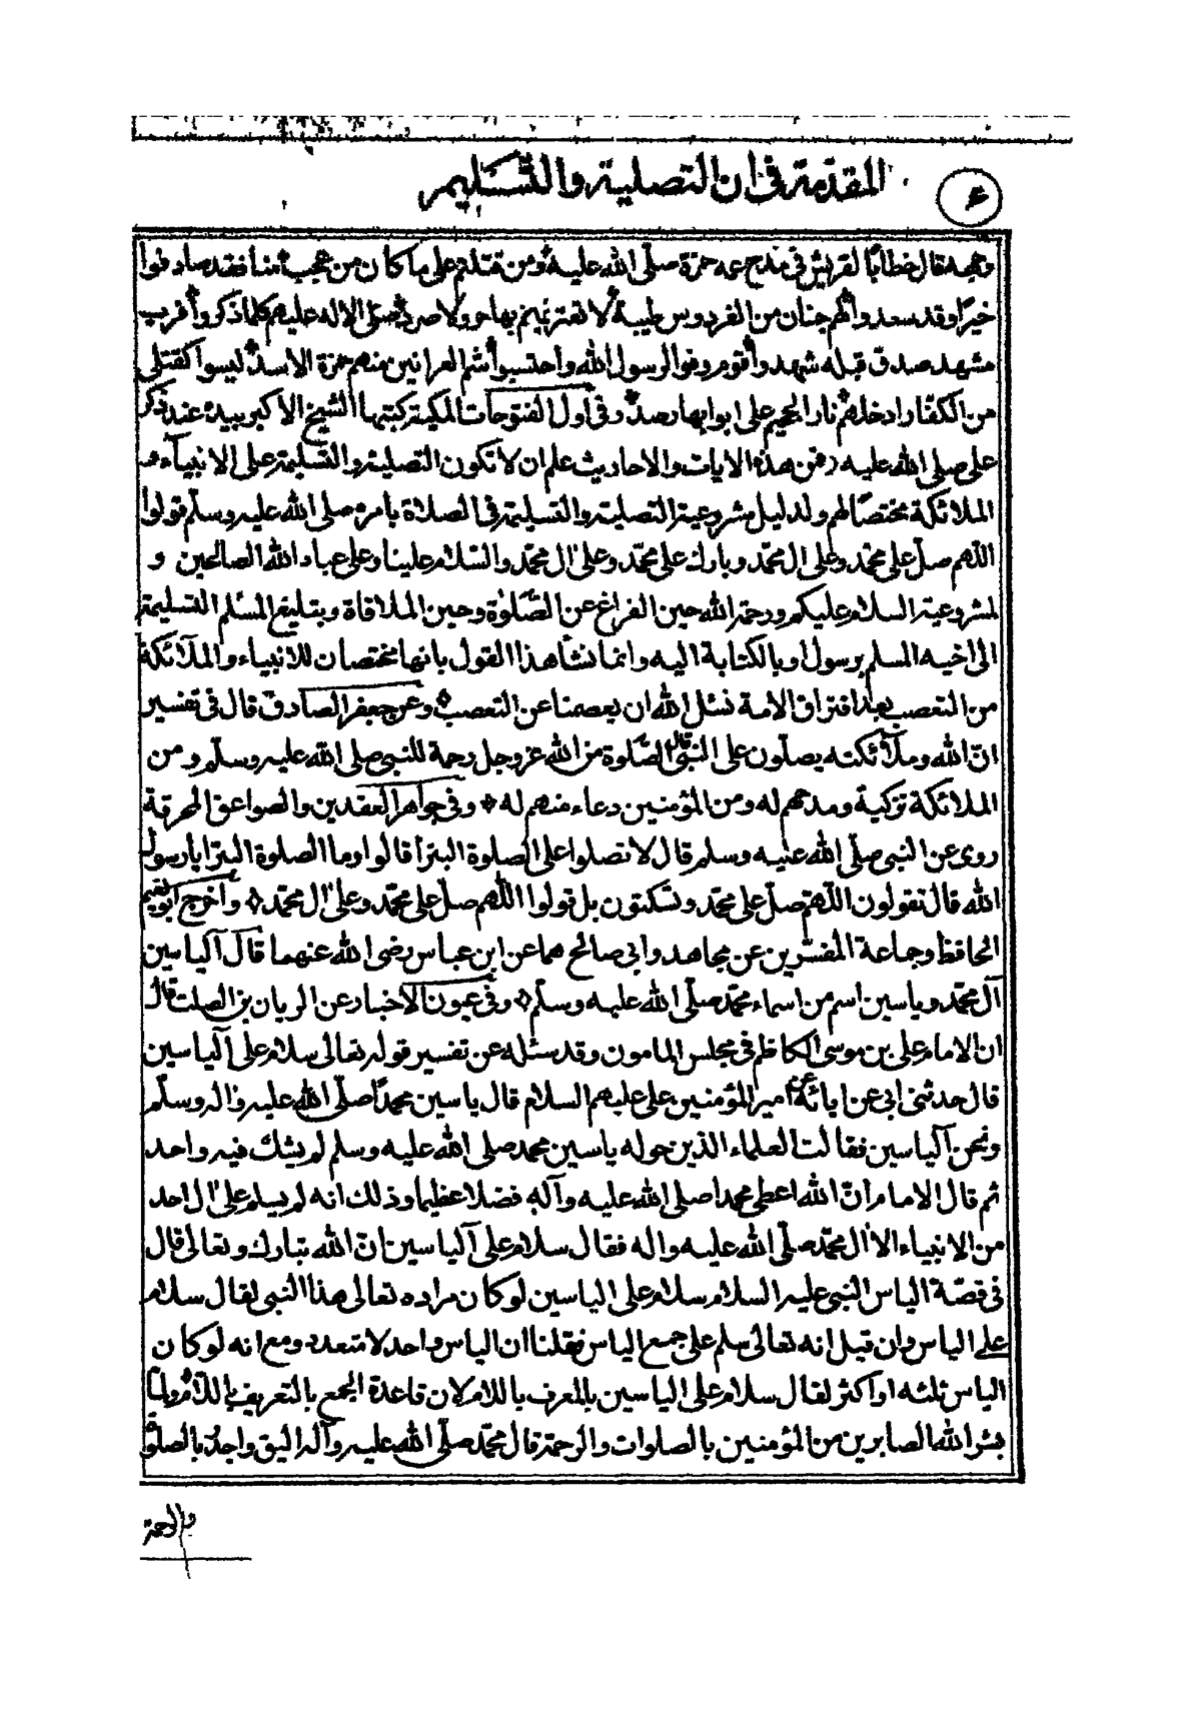 المقدمة فى ان التصلية والتسليم
وجهه قال خطابا لقريش فى مدح عمه حمزة صلى الله عليه ومن قتله على ما كان من عجب منا فقد صادفوا
خيرا وقد سعدوا لهم جنان من الفردوس طيبة لا تعتريهم بها حر ولا صرد صلى الاله عليهم كلما ذكروا فرب
مشهد صدق قبله شهدوا قوم وفوا لرسول الله واحتسبوا شم العرانين منهم حمزة الاسد ليسوا كقتلى
من الكفار ادخلهم نار الجحيم على ابوابها رصد وفى اول الفتوحات المكية كتبها الشيخ الاكبر بيده عند ذكر
على صلى الله عليه فمن هذه الايات والاحاديث علم ان لا تكون التصلية والتسليمة على الانبياء و
الملائكة مختصا لهم ولدليل مشروعية التصلية والتسليمة فى الصلاة بامره صلى الله عليه وسلم قولوا
اللهم صل على محمد وعلى ال محمد وبارك على محمد وعلى ال محمد والسلام علينا وعلى عباد الله الصالحين و
لمشروعية السلام عليكم ورحمة الله حين الفراغ عن الصلوة وحين الملاقاة وبتبليغ المسلم التسليمة
الى اخيه المسلم برسول او بالكتابة اليه وانما نشأ هذا القول بانها مختصان للانبياء والملآئكة
من التعصب بعد افتراق الامة نسئل الله ان يعصمنا عن التعصب وعن جعفر الصادق قال فى تفسير
ان الله وملآئكته يصلون على النبى قال الصلوة من الله عز وجل رحمة للنبى صلى الله عليه وسلم ومن
الملائكة تزكية ومدحهم له ومن المؤمنين دعاء منهم له وفى جواهر العقدين والصواعق المحرقة
روى عن النبى صلى الله عليه وسلم قال لا تصلوا على الصلوة البترا قالوا وما الصلوة البترا يا رسول
الله قال تقولون اللهم صل على محمد وتسكتون بل قولوا اللهم صل على محمد وعلى ال محمد واخرج ابو نعيم
الحافظ وجماعة المفسرين عن مجاهد وابى صالح هما عن ابن عباس رضى الله عنهما قال آلياسين
آل محمد وياسين اسم من اسماء محمد صلى الله عليه وسلم وفى عيون الاخبار عن الريان بن الصلت قال
ان الامام على بن موسى الكاظم فى مجلس المامون وقد سئله عن تفسير قوله تعالى سلام على آلياسين
قال حدثنى ابى عن ابائه عن امير المؤمنين على عليهم السلام قال ياسين محمدا صلى الله عليه واله وسلم
ونحن آلياسين فقالت العلماء الذين حوله ياسين محمد صلى الله عليه وسلم لم يشك فيه واحد
ثم قال الامام ان الله اعطى محمدا صلى الله عليه وآله فضلا عظيما وذلك انه لم يسلم على ال احد
من الانبياء الا ال محمد صلى الله عليه واله فقال سلام على آلياسين ان الله تبارك وتعالى قال
فى قصة الياس النبى عليه السلام سلام على الياسين لو كان مراده تعالى هذا النبى لقال سلام
على الياس وان قيل انه تعالى سلم على جمع الياس فقلنا ان الياس واحد لا متعدد ومع انه لو كان
الياس ثلثه او اكثر لقال سلام على الياسين بالمعرف باللام لان قاعدة الجمع بالتعريف باللام ولما
بشر الله الصابرين من المؤمنين بالصلوات والرحمة قال محمد صلى الله عليه وآله اليق واجدر بالصلوة
والرحمة